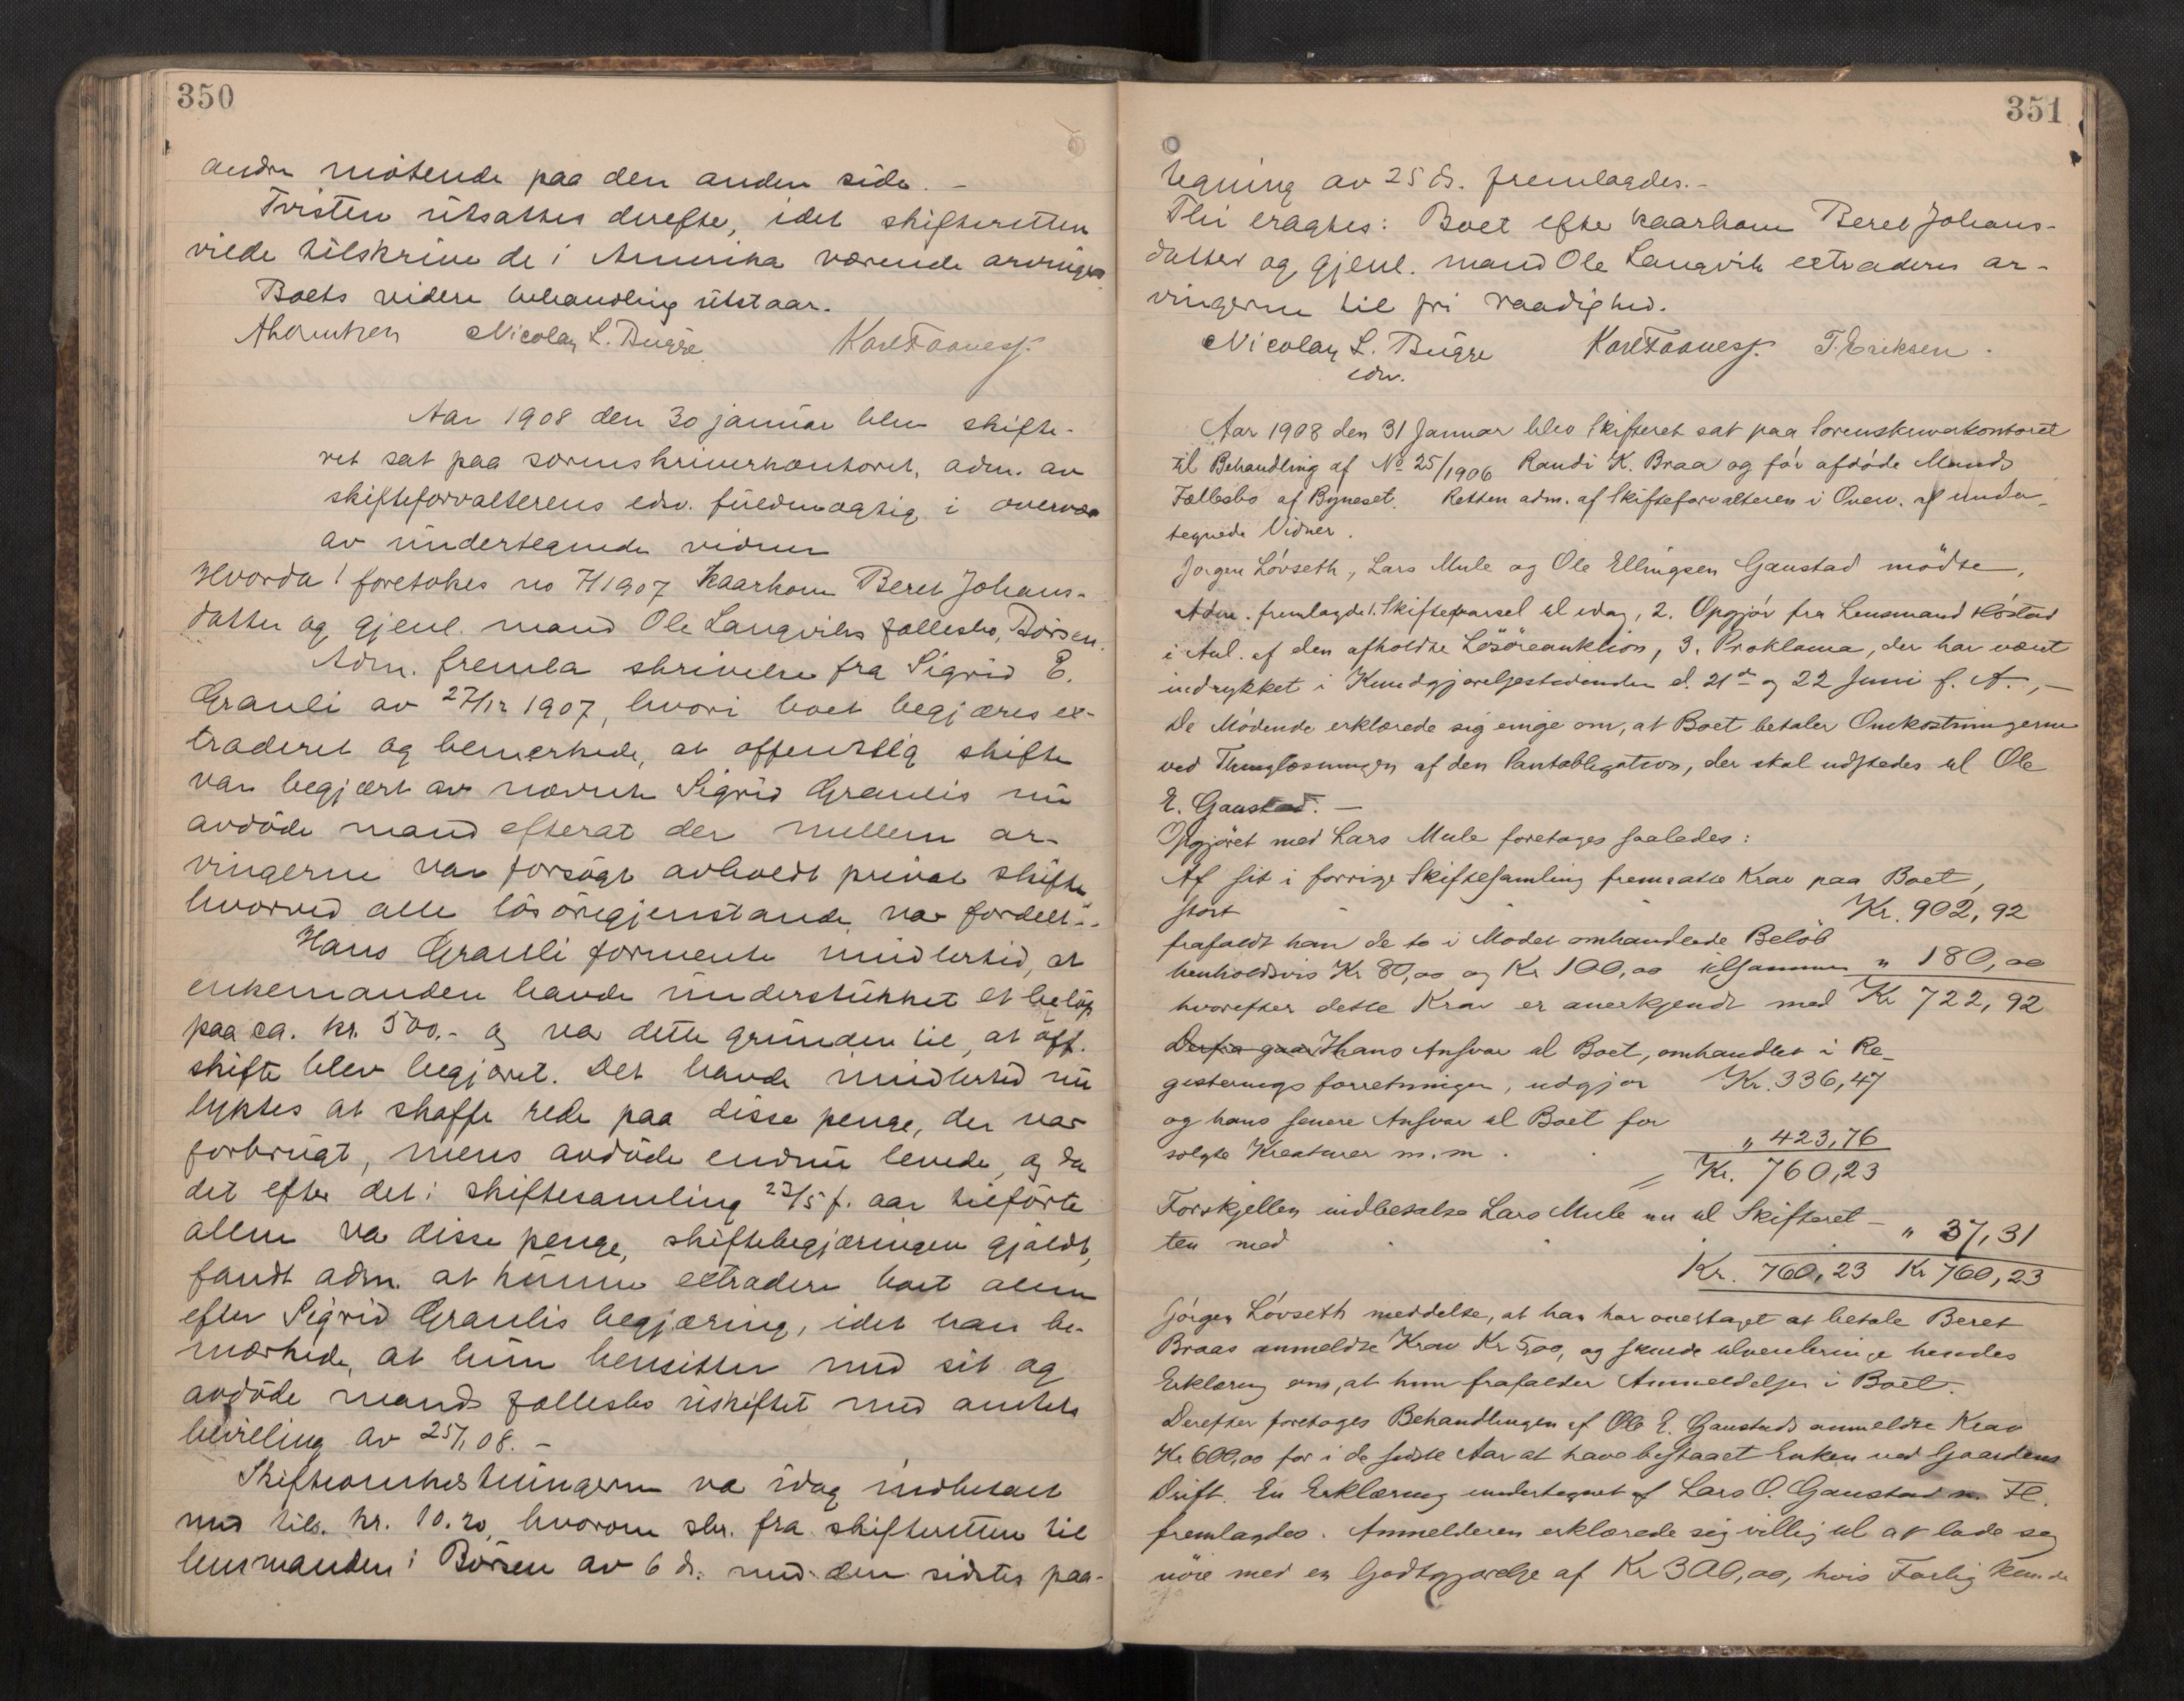 350
andre møtende paa den anden side. –
Tvisten utsattes derefter, idet skifteretten
vilde tilskrive de i Amerika værende arvinger
Boets videre behandling utstaar.
Nicolay L. Bugge
Aar 1908 den 30 januar blev skifte-
ret sat paa sorenskriverkontoret, adm. av
skifteforvalterens edsv. fuldmægtig i overvær
av undertegnede vidner
Hvorda! foretokes no 7/1907 Kaarkone Beret Johans-
datter og gjenl. mand Ole Langviks fællesbo, Børsen.
Adm. fremla skrivelse fra Sigrid E.
Grauli av 27/12 1907, hvori boet begjæres ex-
traderet og bemerkede, at offentlig skifte
var begjært av nævnte Sigrid Graulis nu
avdøde mand efterat der mellem ar-
vingerne var forsøgt avholdt privat skifte
hvorved alle løsøregjenstande var fordelt. –
Hans Grauli formente imidlertid, at
enkemanden havde understukket et beløp
paa ca. kr. 500.- og var dette grunden til, at off.
skifte blev begjæret. Det havde imidlertid nu
lyktes at skaffe rede paa disse penge, der var
forbrugt, mens avdøde endnu levede, og da
det efter det i skiftesamling 23/5 f. aar tilførte
alene var disse penge, skiftebegjæringen gjaldt,
fandt adm. at kunne extradere boet alene
efter Sigrid Graulis begjæring, idet han be-
mærkede, at hun hensitter med sit og
avdøde mands fællesbo uskiftet med amtets
bevilling av 25/1 08. –
Skifteomkostningerne var idag indbetalt
med tils. kr. 10.20, hvorom skr. fra skifteretten til
lensmanden i Børsen av 6 ds. med den sidstes paa-
351
tegning av 25 ds. fremlagdes. –
Thi eragtes: Boet efter kaarkone Beret Johans-
datter og gjenl. mand Ole Langvik extraderes ar-
vingerne til fri raadighed.
Nicolay L. Bugge T. Eriksen.
edsv.
Aar 1908 den 31 Januar blev Skifteret sat paa Sorenskriverkontoret
til Behandling af No 25/1906 Randi K. Braa og før afdøde Mands
Fællesbo af Byneset. Retten adm. af Skifteforvalteren i Overv. af under-
tegnede Vidner.
Jørgen Løvseth, Lars Mule og Ole Ellingsen Gaustad mødte,
Adm. fremlagde 1. Skiftevarsel til idag, 2. Opgjør fra Lensmand Høstad
i Anl. af den afholdte Løsøreauktion, 3. Proklama, der har været
indrykket i Kundgjørelsestidenden d. 21de og 22 Juni f. A., –
De Mødende erklærede sig enige om, at Boet betaler Omkostningerne
ved Thinglæsningen af den Pantobligation, der skal udstedes til Ole
E. Gaustad. –
Opgjøret med Lars Mule foretages saaledes:
Af sit i forrige Skiftesamling fremsatte Krav paa Boet,
stort Kr. 902,92
frafaldt han de to i Mødet omhandlede Beløb
henholdsvis Kr 80,00 og Kr 100,00 tilsammen " 180,00
hvorefter dette Krav er anerkjendt med Kr 722,92
Derfra gaar Hans Ansvar til Boet, omhandlet i Re-
gistreringsforretningen, udgjør Kr. 336,47
og hans senere Ansvar til Boet for
solgte Kreaturer m.m. " 423,76
= Kr. 760,23
Forskjellen indbetalte Lars Mule nu til Skifteret-
ten med " 37,31
Kr. 760,23 Kr 760,23
Jørgen Løvseth meddelte, at han har overtaget at betale Beret
Braas anmeldte Krav Kr 5,00, og skulde tilveiebringe hendes
Erklæring om, at hun frafalder Anmeldelsen i Boet.
Derefter foretages Behandlingen af Ole E. Gaustads anmeldte Krav
Kr 600,00 for i de sidste Aar at have bistaaet Enken ved Gaardens
Drift. En Erklæring undertegnet af Lars O. Gaustad m. Fl.
fremlagdes. Anmelderen erklærede sig villig til at lade sig
nøie med en Godtgjørelse af Kr 300,00, hvis Forlig kunde